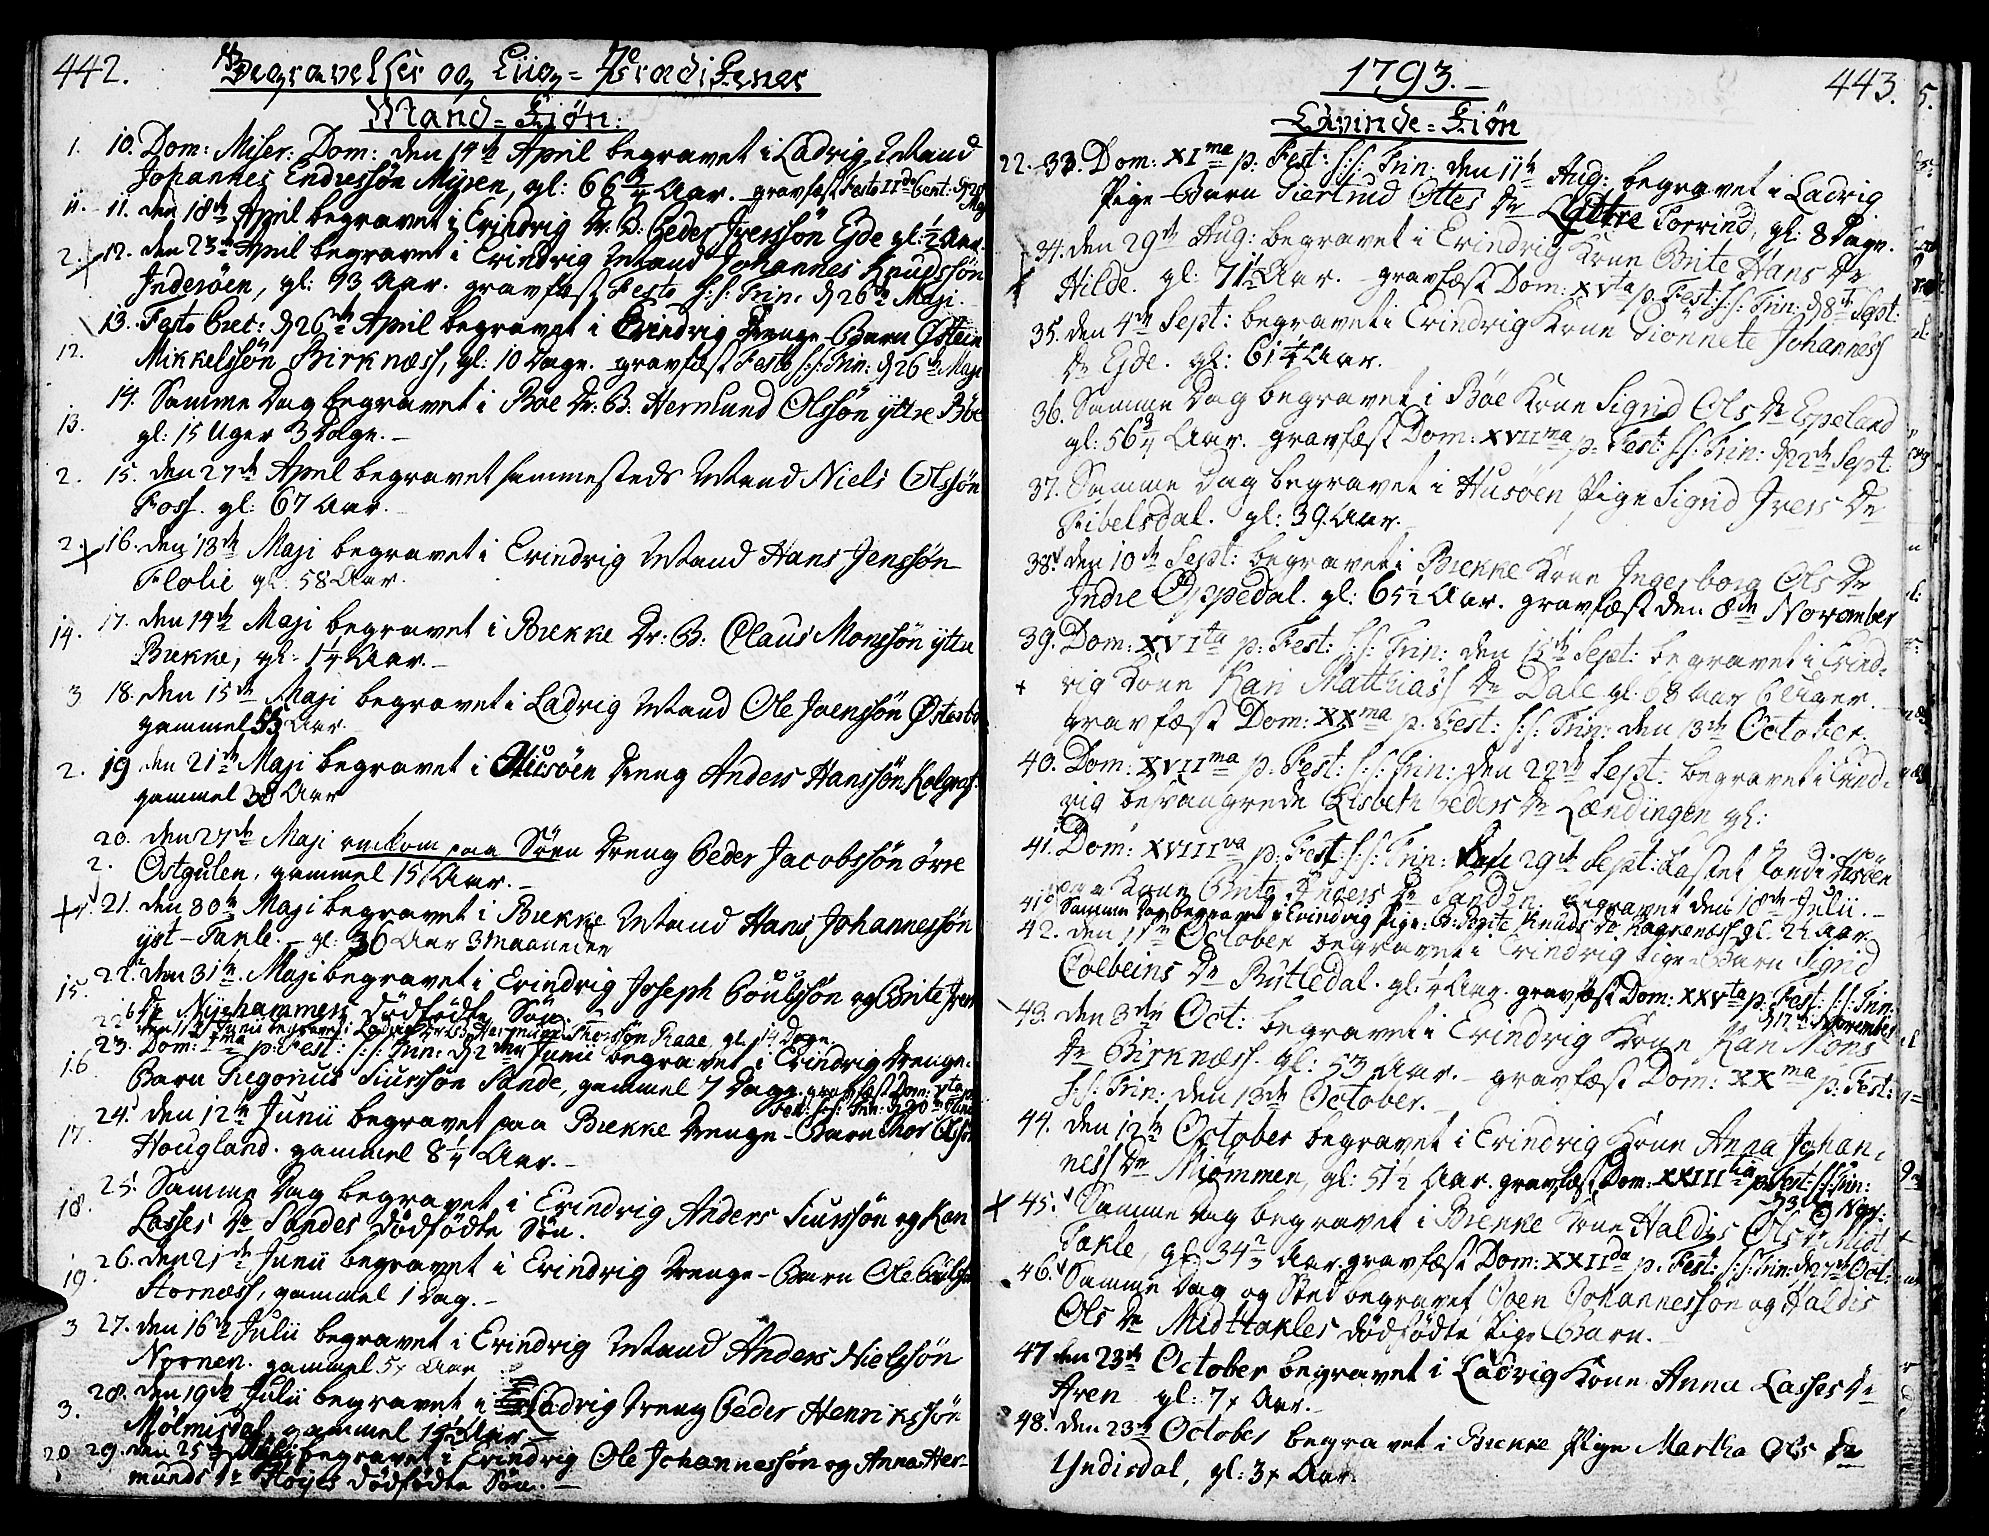 442. Begravelser og Liig-Prædikener
Mand-Kiøn:
1. 10. Dom: Miser: Dom: den 14de April begravet i Ladvig Mand
Johannes Endressøn Myren, gl: 66 3/4 Aar.
11. 11. den 18de April begravet i Evindvig Dr: B: Peder Iverssøn Eide gl: 1/2 Aar.
2. 12. den 23de April begravet i Evindvig Mand Johannes Knudssøn
Inderøen, gl: 73 Aar. gravfæst Festo S:S: Trin: d 26de Maji.
13. Festo Prec: d 26de April begravet i Evindvig Drenge-Barn Østein
12. Mikkelssøn Birknæss, gl: 10 Dage. gravfæst Festo S:S: Trin: d 26de Maji
14. Samme Dag begravet i Bøe Dr: B. Hermund Olssøn yttre Bøe
13. gl: 15 Uger 3 Dage.
2. 15. den 27de April begravet sammesteds Mand Niels Olssøn
Foss. gl: 67 Aar.
2. 16. den 13de Maji begravet i Evindvig Mand Hans Jenssøn
Flolie gl: 58 Aar.
14. 17. den 14de Maji begravet i Brekke Dr: B: Claus Monssøn yttre
Brekke, gl: 1 1/4 Aar.
3 18. den 15de Maji begravet i Ladvig Mand Ole Joenssøn Østerbø
gammel 53 Aar.
2. 19 den 21de Maji begravet i Husøen Dreng Anders Hanssøn
gammel 38 Aar
20. den 27de Maji omkom paa Søen Dreng Peder Jacobssøn
2. Ostgulen, gammel 15 Aar.
21. den 30te Maji begravet i Brekke Mand Hans Johannessøn
yst-Takle. gl: 36 Aar 3 Maaneder
22. den 31te Maji begravet i Evindvig Joseph Poulssøn og Brite Ivers
15. Dr Nyehammers dødfødte Søn.
22b den 11te Junii begravet i Ladvig gl. 14 Dage.
23. Dom: Ima p: Fest: S:S: Trin: d 2den Junii begravet i Evindvig Drenge-
16 Barn Gregorius Siurssøn Sande, gammel 7 Dage. gravfæst Dom: Vta p:
Fest: S:S: Trin: d 30te Junii
24. den 12te Junii begravet paa Brekke Drenge-Barn Thor Olssøn
17. Hougland. gammel 8 1/4 Aar.
25. Samme Dag begravet i Evindvig Anders Siurssøn og Kari
18. Lasses Dr Sandes dødfødte Søn.
26. den 21de Junii begravet i Evindvig Drenge-Barn Ole Poulssøn
19. Stornæss, gammel 1 Dag.
3 27. den 16de Julii begravet i Evindvig Mand Anders Nielssøn
Nornen. gammel 5x Aar
28. den 19de Julii begravet i Ladvig Dreng Peder Henrikssøn
3. Mølmisdal, gammel 19 1/2 Aar.
20 29. den 25de Julii begravet i Evindvig Ole Johannessøn og Anna Her-
munds Dr Høyes dødfødte Søn.
1793. 443.
Qvinde-Kiøn
22. 33. Dom: XIma p: Fest: S:S: Trin: den 11te Aug: begravet i Ladvig
Pige-Barn Giertrud Ottes Dr Yttre Torvind, gl: 8 Dage.
34. den 29de Aug: begravet i Evindvig Kone Brite Hans Dr
Hilde. gl: 71 1/2 Aar. gravfæst Dom: XVta p: Fest: S:S: Trin: d 8de Sept:
35. den 4de Sept: begravet i Evindvig Kone Sionnete Johannes
Dr Eide. gl: 61 1/4 Aar.
36. Samme Dag begravet i Bøe Kone Sigrid Ols Dr Espeland
gl: 56 3/4 Aar. gravfæst Dom: XVIIma p: Fest: S:S: Trin: d 22de Sept:
37. Samme Dag begravet i Husøen Pige Sigrid Ivers Dr
Fibelsdal. gl: 39 Aar.
38. den 10de Sept: begravet i Brekke Kone Ingerborg Ols Dr
Indre Oppedal. gl: 65 1/2 Aar. gravfæst den 8de November
39. Dom: XVIta p: Fest: S:S: Trin: den 15de Sept: begravet i Evind-
vig Kone Kari Matthias Dr Dale gl: 68 Aar 6 Uger.
gravfæst Dom: XXma p: Fest: S:S: Trin: den 13de October.
40. Dom: XVIIma p: Fest: S:S: Trin: den 22de Sept: begravet i Evind-
vig besvangrede Elsbeth Peders Dr Lændingen gl:
41. Dom: XVIIIva p: Fest: S:S: Trin: den 29de Sept: Kastet Jord i Husøen
paa Kone Brite Anders Dr Sanden. begravet den 18de Julii.
41b Samme Dag begravet i Evindvig Pige-B: Dr gl. 2 1/2 Aar
42. den 1ste October begravet i Evindvig Pige-Barn Sigrid
Colbeins Dr Rutledal. gl: 1/4 Aar. gravfæst Dom: XXVta p: Fest: S:S: Trin:
d 17de November
43. den 3die Oct: begravet i Evindvig Kone Kari Mons
Dr Birknæss. gl: 53 Aar. gravfæst Dom: XXma p: Fest:
S:S: Trin: den 13de October.
44. den 12te October begravet i Evindvig Kone Anna Johan-
nes Dr Miømmen, gl: 51 1/2 Aar. gravfæst Dom: XXIIItia p: Fest: S:S: Trin:
d 3die Nov:
45. Samme Dag begravet i Brekke Kone Haldis Ols Dr Midt
Takle, gl: 34 2/3 Aar. gravfæst Dom: XXIIda p: Fest: S:S: Trin: d 27de Oct:
46. Samme Dag og Sted begravet Joen Johannessøn og Haldis
Ols Dr Midttakles dødfødte Pige-Barn.
47 den 23de October begravet i Ladvig Kone Anna Lasses Dr
Aren gl: 7x Aar.
48. den 23de October begravet i Brekke Pige Martha Ols Dr
Yndisdal, gl: 3x Aar.